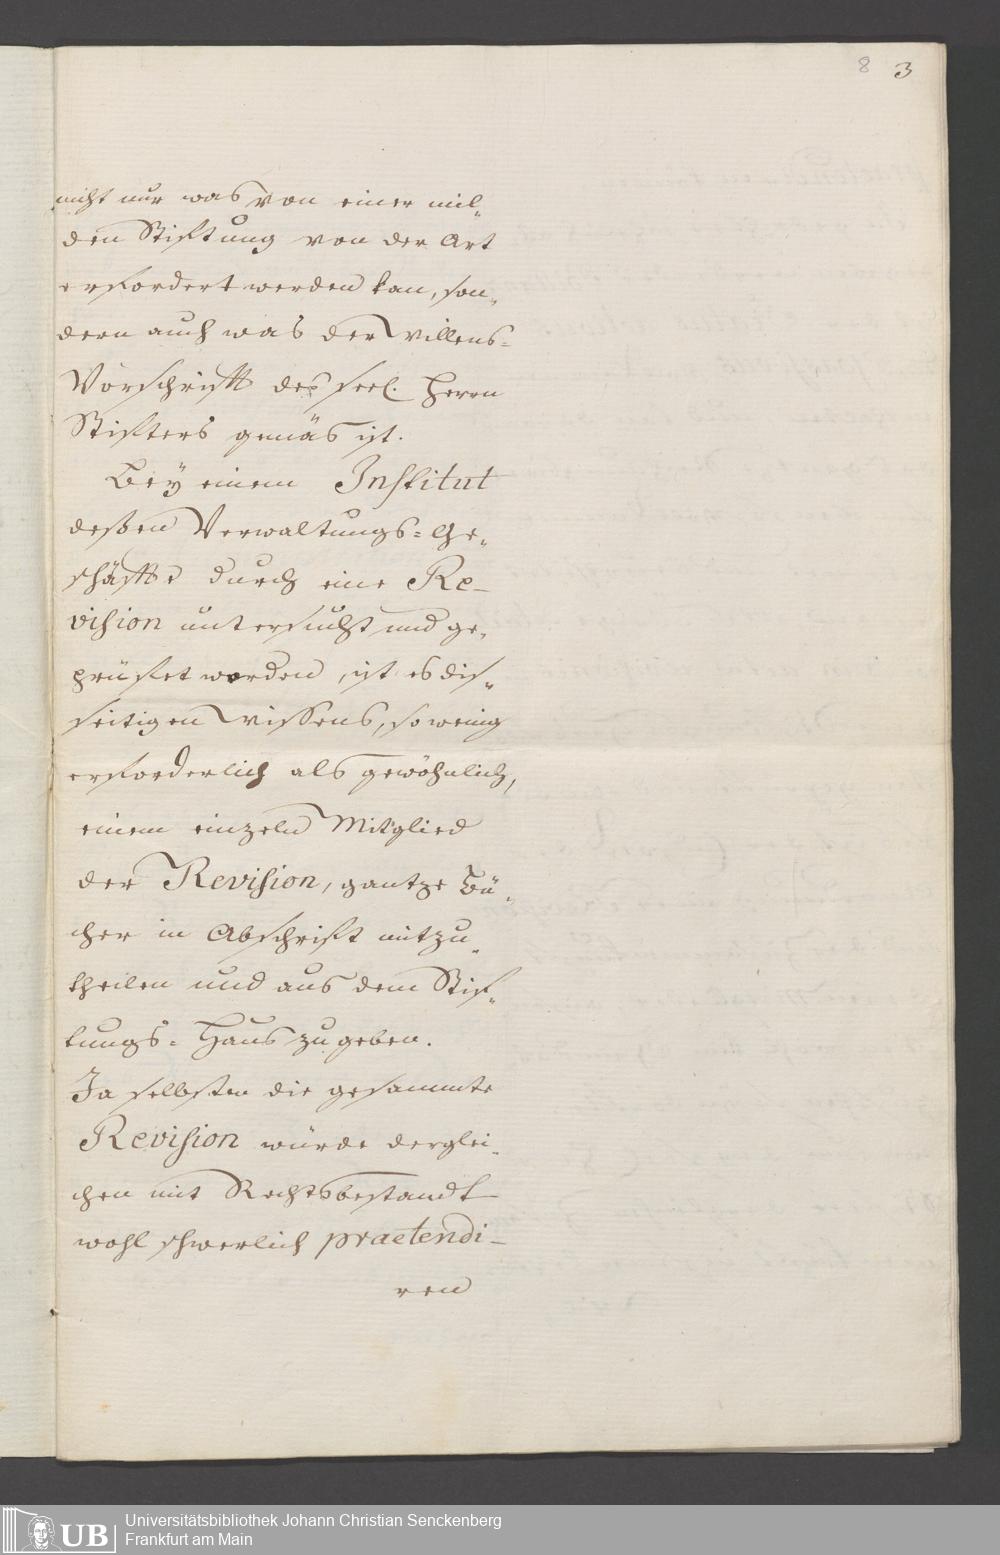 8 3
nicht nur was von einer mil„
den Stiftung von der Art
erfordert werden kan, son„
dern auch was der Willens=
Vorschrifft des seel. Herrn
Stifters gemäs ist.
Bey einem Institut
deßen Verwaltungs=Ge„
schäffte durch eine Re-
vision untersucht und ge„
prüfet worden, ist es dis„
seitigen Wissens, so wenig
erforderlich als gewöhnlich,
einem einzeln Mitglied
der Revision, gantze Bü„
cher in Abschrift mitzu„
theilen und aus dem Stif„
tungs=Haus zu geben.
Ja selbsten die gesammte
Revision würde derglei„
chen mit Rechtsbestandt
wohl schwerlich praetendi-
ren
UB
Universitätsbibliothek Johann Christian Senckenberg
Frankfurt am Main